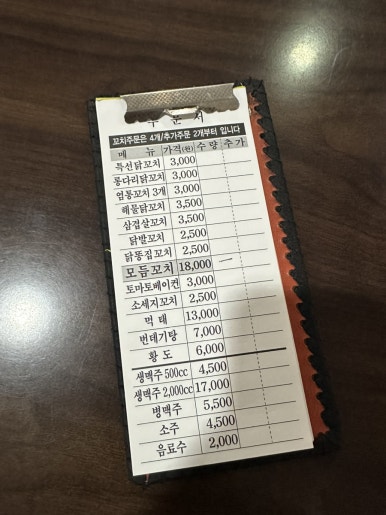 주 문 서
꼬치주문은 4개/추가주문 2개부터 입니다
메 뉴 가격(원) 수 량 추 가
특선닭꼬치 3,000
롱다리닭꼬치 3,000
염통꼬치 3개 3,000
해물닭꼬치 3,500
삼겹살꼬치 3,500
닭발꼬치 2,500
닭똥집꼬치 2,500
모듬꼬치 18,000 ㅡ
토마토베이컨 3,000
소세지꼬치 2,500
먹 태 13,000
번데기탕 7,000
황 도 6,000
생맥주 500cc 4,500
생맥주 2,000cc 17,000
병맥주 5,500
소주 4,500
음료수 2,000